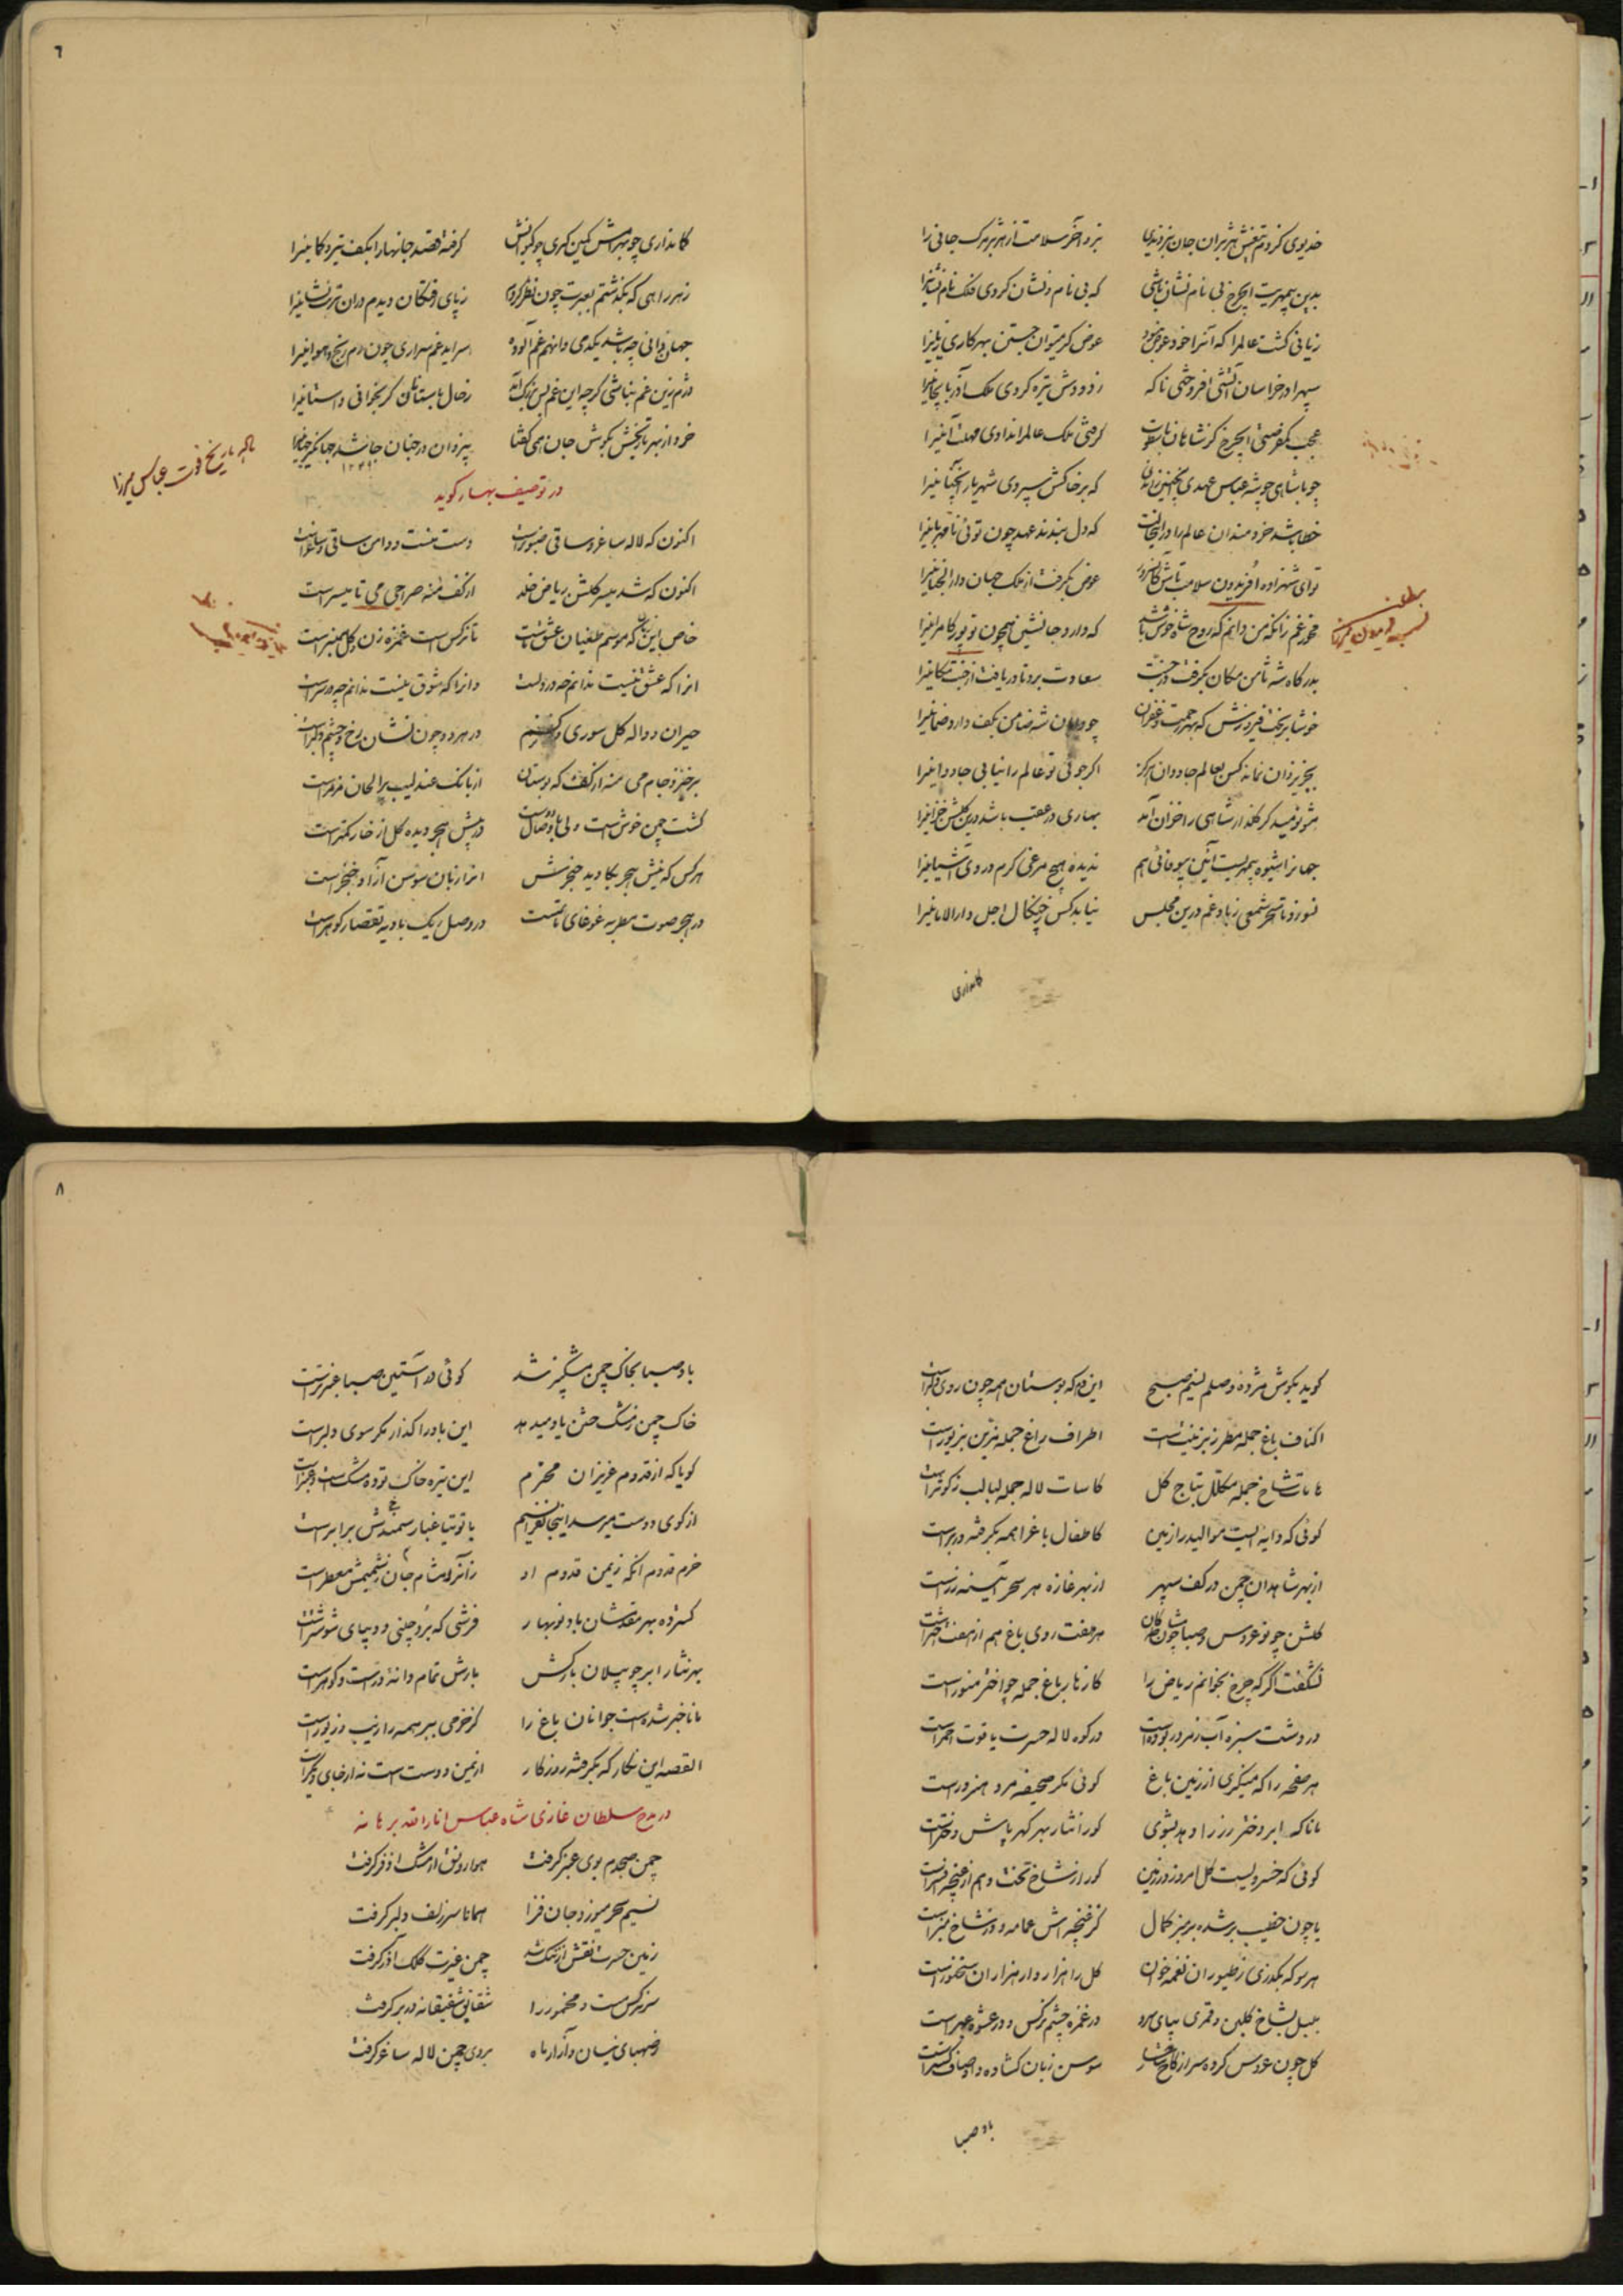 خدیوی کز دم تیغش هژبران جان نبردندی نبرد آخر سلامت از هژبر مرک جانی را
بدین بیمهریت ایچرخ بی نام نشان باشی که بی نام و نشان کردی فلک نام نشانیرا
زیانی کشت عالمرا که آنرا خود عوض نبود عوض کر میتوان جستن بهر کاری زیانیرا
سپهرا در خراسان آتشی افروختی ناکه ز دودش تیره کردی ملک آذربایجانیرا
عجب کمفرصتی ایچرخ کز شاهان کرفتی ملک عالم را ندادی مهلت آنیرا
چو با شاهی چو شه عباس عهدی که بر خاکش سپردی شهریار آنچنانیرا
خطا باشد خردمندان عالم را که دل بندند عهد چون توئی نامهربانیرا
تو ای شهزاده افریدون سلامت باش عوض بکرفت از ملک جهان دار الجنانیرا
مخور غم زانکه من دانم که روح شاه خوش باشد که دارد جانشین همچون تو پور کامرانیرا
بدرکاه شه ثامن مکان بکرفت سعادت برد تا دریافت از جنت مکانیرا
خوشا بر بخت فیروزش که بهر رحمت و غفران چو شه ضامن بکف دارد ضمانیرا
بجز یزدان نماند کس بعالم جاودان هرکز اکر جوئی تو عالم را نیابی جاودانیرا
مشو نومید کر کلزار شاهی را خزان آمد بهاری در عقب باشد درین کلشن خزانیرا
جهانرا شیوه بیمهریست آئین بیوفائی هم ندیده هیچ مرغی کرم در وی آشیانیرا
نسوزد تا سحر شمعی ز باد غم درین مجلس نیابد کس ز چنکال اجل دار الامانیرا
کمانداری
٦
کمانداری چو بهرامش کمین کرفته قصد جانها را بکف تیر و کمانیرا
ز هر راهی که بکذشتم بعبرت چون نظر کردم ز پای رفتکان دیدم دران تربت نشانیرا
جهان فانی چه باشد یکدمی وانهم غم آلوده
دژم زین غم نباشی کرچه این غم بس بزرک آمد ز خال باستان کر بخوانی داستانیرا
خرد از بهر تاریخش بکوش جان همی کفتا بیزدان در جنان جا شد جهانکیر جهانیرا
۱۲۴۹
ماله تاریخ فوت عباس میرزا
در توصیف بهار کوید
اکنون که لاله ساغر و ساقی صنوبر است دست منست و دامن ساقی و ساغر است
اکنون که شد بسیر کلشن ریاض خلد از کف منه صراحی می تا میسر است
خاص این زمان که موسم طغیان عشق ماست تا نرکس است غمزه زن و کل سمنبر است
انرا که عشق نیست ندانم چه در دلست وانرا که شوق نیست ندانم چه در سر است
حیران و واله کل سوری و نرکسم در هر دو چون نشان رخ و چشم دلبر است
برخیز و جام می منه از کف که بوستان از بانک عندلیب پر الحان مزمر است
کشت چمن خوش است ولی با وصال دوست در پیش هجر دیده کل از خار کمتر است
هرکس که نیش هجر بکاوید خنجرش انرا زبان سوسن آزاد خنجر است
در هجر صوت مطربه غوغای ماتمست در وصل ریک بادیه تقصار کوهر است
کوید بکوش مژده وصلم نسیم صبح این دم که بوستان همه چون روی دلبر است
اکناف باغ جمله مطرز بزینت است اطراف راغ جمله مزین بزیور است
هامات شاخ جمله مکلل بتاج کل کاسات لاله جمله لبالب ز کوثر است
کوئی که دایه ایست موالید را زمین کاطفال باغ را همه بکرفته در بر است
از بهر شاهدان چمن در کف سپهر از بهر غازه هر سحر آئینه زر است
کلشن چو نو عروس و صبا چون مشاطکان هر هفت روی باغ هم از هفت اختر است
نشکفت اکر که چرخ بخوانم ریاض را کازهار باغ جمله چو اختر منور است
در دشت سبزه آب زمرد ربوده است در کوه لاله حسرت یاقوت احمر است
هر صفحه را که مینکری از زمین باغ کوئی مکر صحیفه مرد هنرور است
مانا که ابر دختر رز را دهد بشوی کورا نثار مهر کهر پاش دختر است
کوئی که خسرویست کل امروز در زمین کورا ز شاخ تخت و هم از غنچه افسر است
یا چون خطیب بر شده بر منبر کمال کز غنچه اش عمامه و از شاخ منبر است
هر سو که بکذری ز طیوران نغمه خوان کل را هزار وار هزاران سخنور است
بلبل بشاخ کلبن و قمری بپای سرو در غمزه چشم نرکس و در عشوه عبهر است
کل چون عروس کرده سر از سوسن زبان کشاده
باد صبا
٨
باد صبا بخاک چمن مشکبیز شد کوئی در آستین صبا عنبر تر است
خاک چمن ز مشک ختن یاد میدهد این باد را کذار مکر سوی دلبر است
کویا که از قدوم عزیزان محترم این تیره خاک توده مشکست و عنبر است
از کوی دوست میرسد اینجا مکر نسیم یا توتیا غبار سمندش برابر است
خرم قدوم انکه ز یمن قدوم او زآنرو مشام جان ز شمیمش معطر است
کسترده بهر مقدمشان باد نوبهار فرشی که برد چینی و دیبای ششتر است
بهر نثار ابر چو پیلان بارکش بارش تمام دانه در است و کوهر است
مانا خبر شده است جوانان باغ را کز خرمی ببر همه را زیب و زیور است
القصه این نکار که بکرفته روزکار از یمن دوست است نه از جای دیکر است
در مدح سلطان غازی شاه عباس انار الله برهانه
چمن صبحدم بوی عنبر کرفت هوا رونق از مشک اذفر کرفت
نسیم سحر میوزد جان فزا همانا سر زلف دلبر کرفت
زمین حسرت نقش ارتنک شد چمن غیرت کلک آذر کرفت
سر نرکس مست و مخمور را شقایق شفیقانه در بر کرفت
ز صهبای نیسان و آزار ماه بروی چمن لاله ساغر کرفت